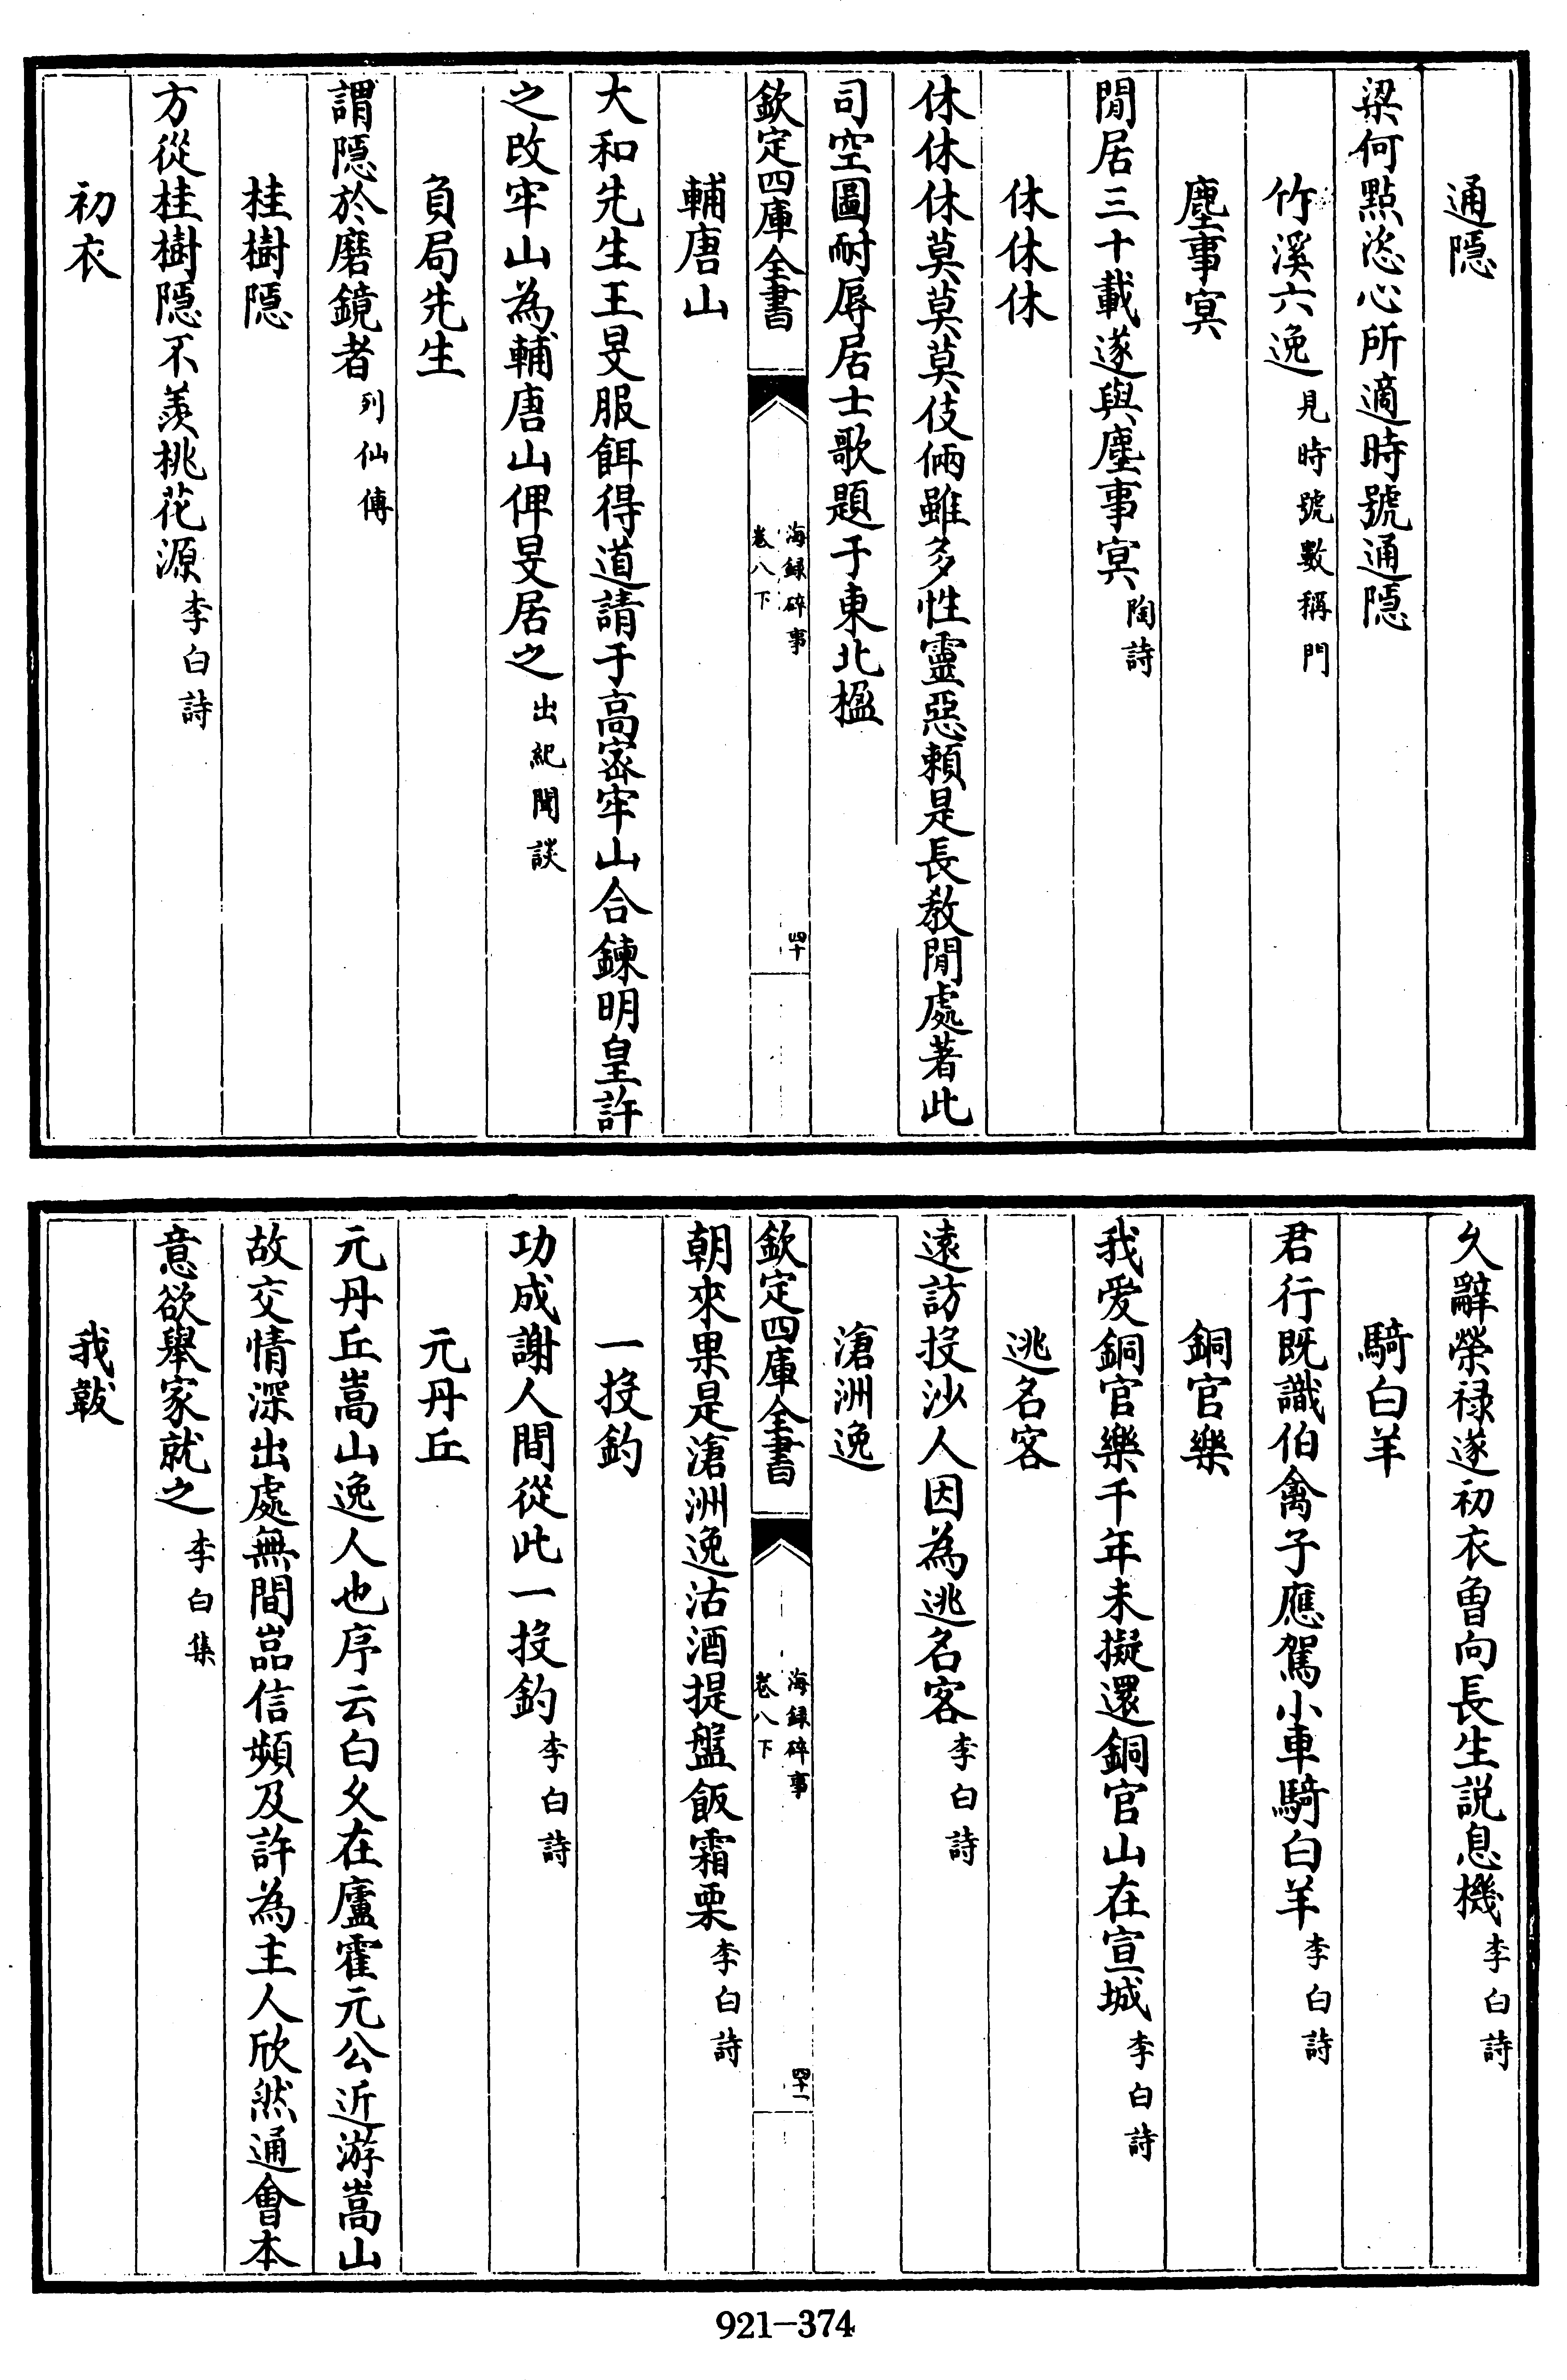 通隠
梁何點恣心所適時號通隠
竹溪六逸見時號數稱門
塵事㝠
閒居三十載遂與塵事㝠陶詩
休休休
休休休莫莫莫伎倆雖多性靈惡賴是長教閒處著此
司空圖耐辱居士歌題于東北楹
欽定四庫全書
海録碎事
卷八下
四十
輔唐山
大和先生王旻服餌得道請于高宻牢山合鍊明皇許
之改牢山為輔唐山俾旻居之出紀聞談
負局先生
謂隠於磨鏡者列仙傳
桂樹隠
方從桂樹隠不羨桃花源李白詩
初衣
久辭榮祿遂初衣曽向長生説息機李白詩
騎白羊
君行既識伯禽子應駕小車騎白羊李白詩
銅官樂
我爱銅官樂千年未擬還銅官山在宣城李白詩
逃名客
遠訪投沙人因為逃名客李白詩
滄洲逸
欽定四庫全書
海録碎事
卷八下
四十一
朝來果是滄洲逸沽酒提盤飯霜栗李白詩
一投釣
功成謝人間從此一投釣李白詩
元丹丘
元丹丘嵩山逸人也序云白久在廬霍元公近游嵩山
故交情深出處無間嵓信頻及許為主人欣然通會本
意欲舉家就之李白集
我皷
921—374